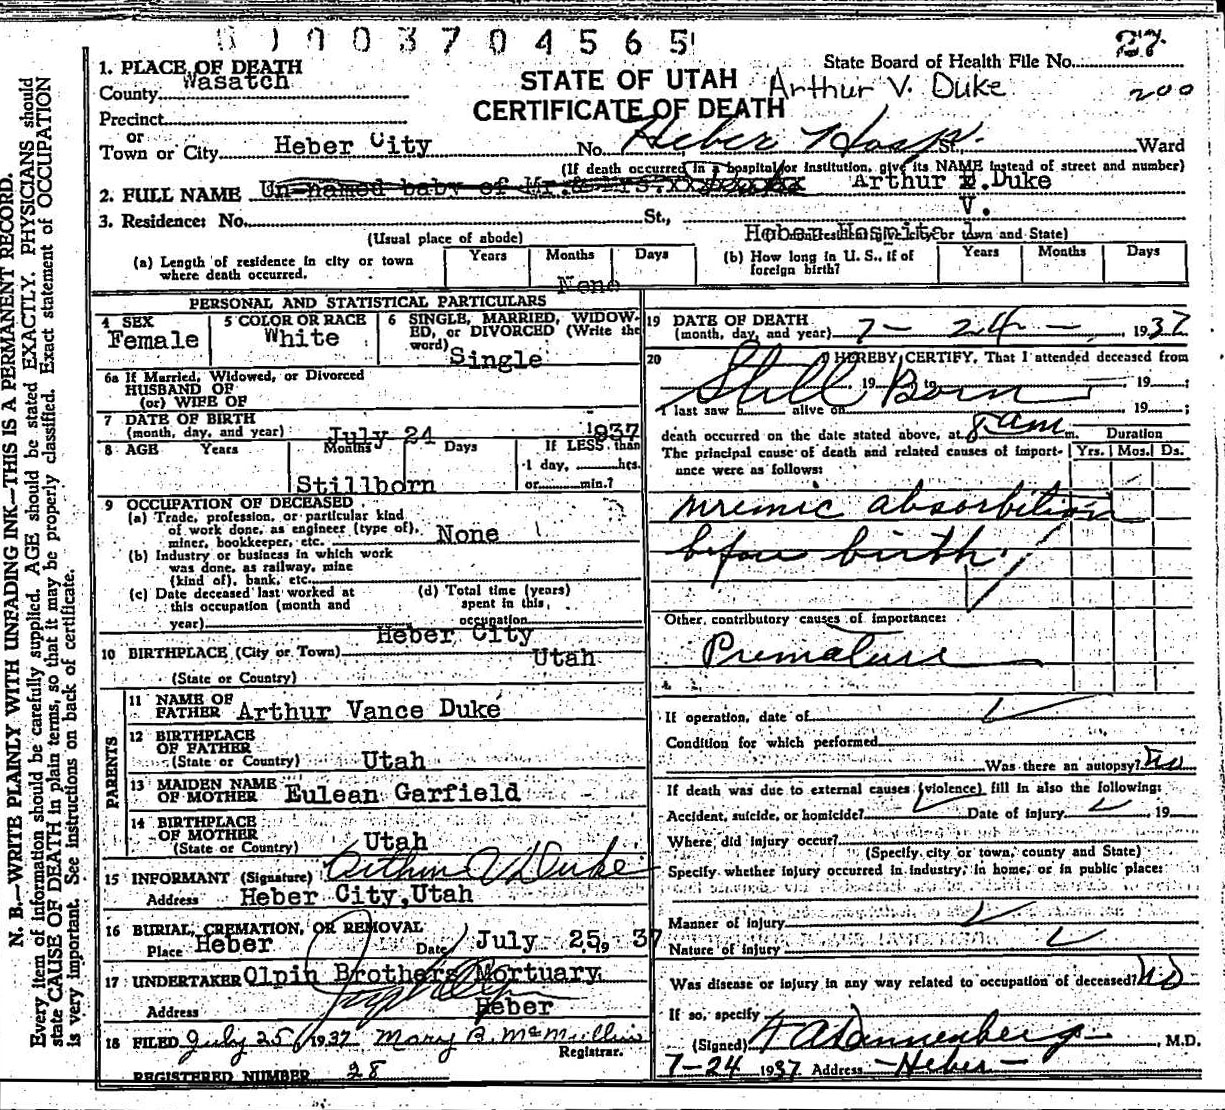 01003704565
27
1. PLACE OF DEATH
State Board of Health File No.
County Wasatch
STATE OF UTAH
Arthur V. Duke
200
Precinct
CERTIFICATE OF DEATH
or
Town or City Heber City No. Heber Hosp. St., Ward
(If death occurred in a hospital or institution, give its NAME instead of street and number)
2. FULL NAME Un-named baby of Mr. & Mrs. Arthur E. Duke
V.
3. Residence: No. St., Heber Hospital
(Usual place of abode) town and State)
(a) Length of residence in city or town where death occurred. Years Months Days
(b) How long in U. S., if of foreign birth? Years Months Days
None
PERSONAL AND STATISTICAL PARTICULARS
4 SEX Female
5 COLOR OR RACE White
6 SINGLE, MARRIED, WIDOW-
ED, or DIVORCED (Write the
word) Single
6a If Married, Widowed, or Divorced
HUSBAND OF
(or) WIFE OF
7 DATE OF BIRTH
(month, day, and year) July 24 1937
8 AGE Years Months Days If LESS than
1 day, hrs.
Stillborn or min.?
9 OCCUPATION OF DECEASED
(a) Trade, profession, or particular kind
of work done, as engineer (type of),
miner, bookkeeper, etc. None
(b) Industry or business in which work
was done, as railway, mine
(kind of), bank, etc.
(c) Date deceased last worked at
this occupation (month and
year)
(d) Total time (years)
spent in this
occupation
10 BIRTHPLACE (City or Town) Heber City
Utah
(State or Country)
PARENTS
11 NAME OF
FATHER Arthur Vance Duke
12 BIRTHPLACE
OF FATHER
(State or Country) Utah
13 MAIDEN NAME
OF MOTHER Eulean Garfield
14 BIRTHPLACE
OF MOTHER
(State or Country) Utah
15 INFORMANT (Signature) Arthur V Duke
Address Heber City, Utah
16 BURIAL, CREMATION, OR REMOVAL
Place Heber Date July 25, 37
17 UNDERTAKER Olpin Brothers Mortuary
Address Heber
18 FILED July 25 1937 Mary B. McMullin
Registrar.
REGISTERED NUMBER 28
19 DATE OF DEATH
(month, day, and year) 7 - 24 - , 1937
20 I HEREBY CERTIFY, That I attended deceased from
Still Born 19 to , 19 ;
I last saw h alive on 19 ;
death occurred on the date stated above, at 8 am m. Duration
The principal cause of death and related causes of import-
ance were as follows:
Yrs. Mos. Ds.
uremic absorbition
before birth.
Other contributory causes of importance:
Premature
If operation, date of
Condition for which performed
Was there an autopsy? No
If death was due to external causes (violence) fill in also the following:
Accident, suicide, or homicide? Date of injury 19
Where did injury occur?
(Specify city or town, county and State)
Specify whether injury occurred in industry, in home, or in public place:
Manner of injury
Nature of injury
Was disease or injury in any way related to occupation of deceased? No
If so, specify
(Signed) Dannenberg , M.D.
7-24 1937 Address - Heber -
N. B.—WRITE PLAINLY WITH UNFADING INK—THIS IS A PERMANENT RECORD.
Every item of information should be carefully supplied. AGE should be stated EXACTLY. PHYSICIANS should
state CAUSE OF DEATH in plain terms, so that it may be properly classified. Exact statement of OCCUPATION
is very important. See instructions on back of certificate.